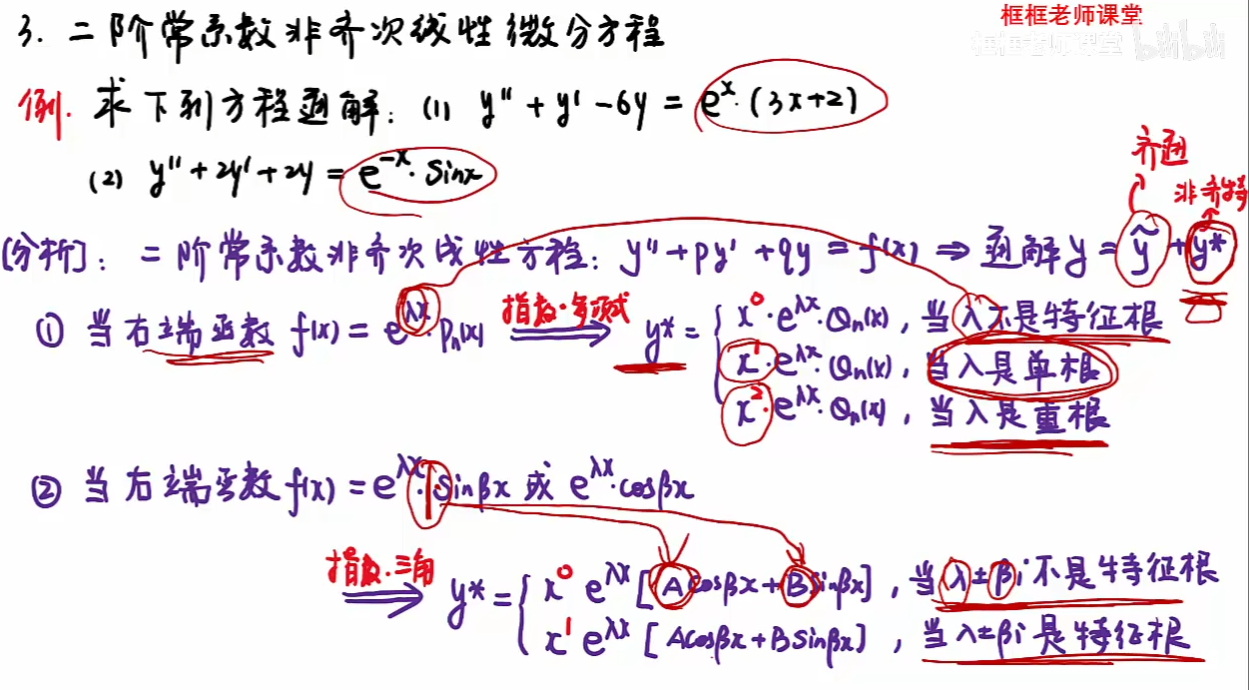 框框老师课堂
框框老师课堂 bilibili
3. 二阶常系数非齐次线性微分方程
例. 求下列方程通解: (1) y'' + y' - 6y = e^x · (3x+2)
(2) y'' + 2y' + 2y = e^{-x} · sinx
齐通
非齐特
[分析]: 二阶常系数非齐次线性方程: y'' + py' + qy = f(x) ⇒ 通解 y = ỹ + y*
① 当右端函数 f(x) = e^{λx} · Pn(x) 指数·多项式 ⟹ y* = { x^0 · e^{λx} · Qn(x), 当λ不是特征根
x^1 · e^{λx} · Qn(x), 当λ是单根
x^2 · e^{λx} · Qn(x), 当λ是重根
② 当右端函数 f(x) = e^{λx} · sinβx 或 e^{λx} · cosβx
指数·三角 ⟹ y* = { x^0 e^{λx} [Acosβx + Bsinβx], 当λ±βi不是特征根
x^1 e^{λx} [Acosβx + Bsinβx], 当λ±βi是特征根